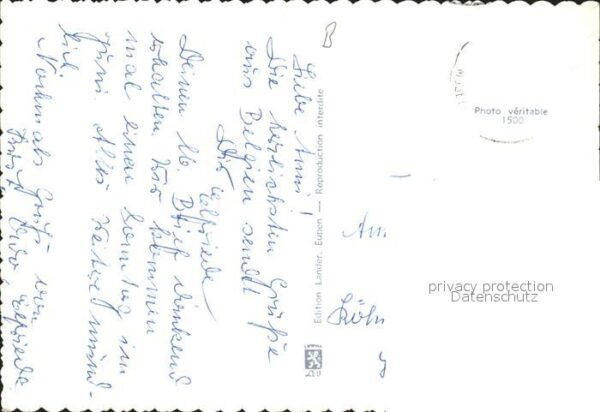 Liebe Anni!
Die herzlichsten Grüße
aus Belgien sendet
Dir Elfriede
Deinen lb. Brief dankend
erhalten. Wir kommen
mal einen Sonntag im
Juni. Alles Weitere münd-
lich.
Nochmals Grüße von
Elfriede
Edition Lander, Eupen — Reproduction interdite
Photo véritable
1500
An
Köln
privacy protection
Datenschutz